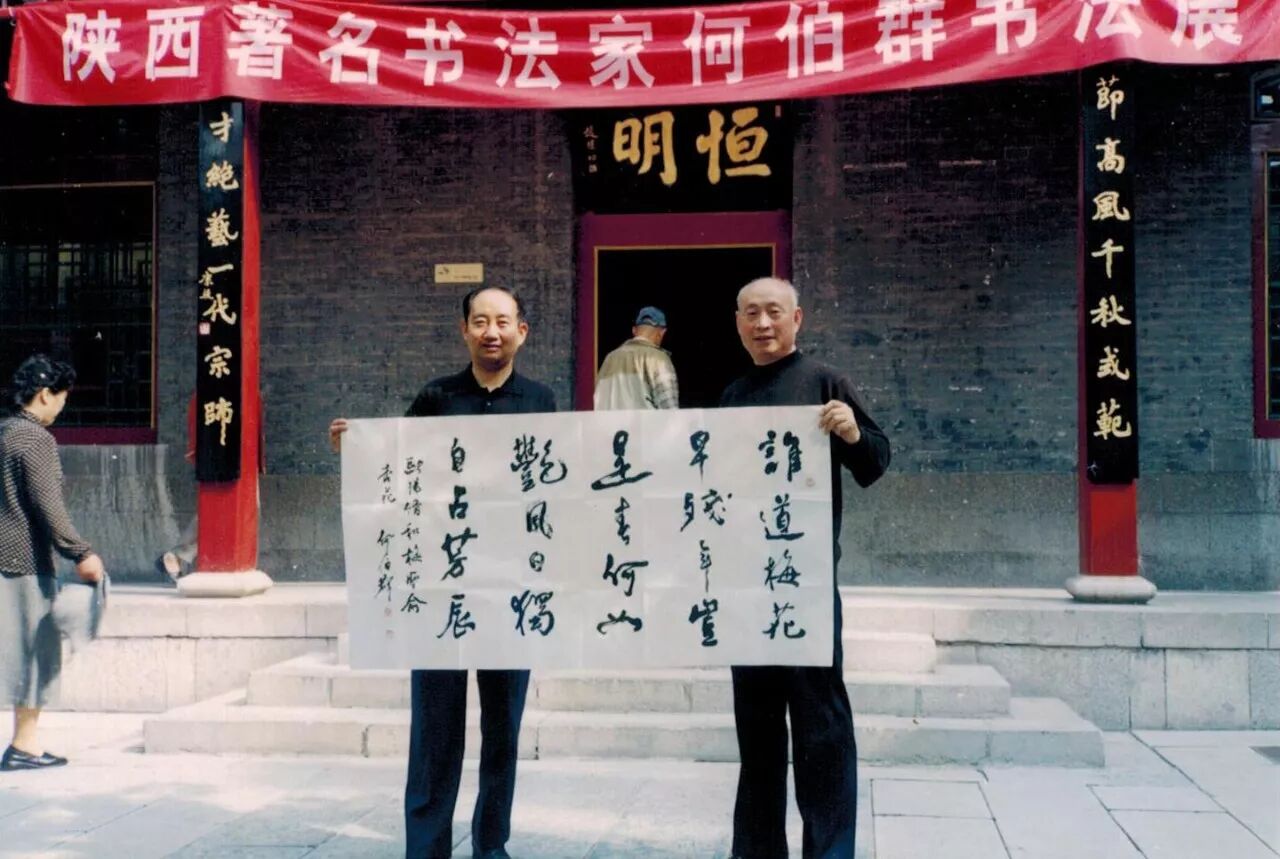 陕西著名书法家何伯群书法展
恒明
節高風千秋式範
才絕藝一代宗師
誰道梅花
早殘年豈
是春何如
艷風日獨
自占芳辰
歐陽脩和梅聖俞
杏花 何伯群